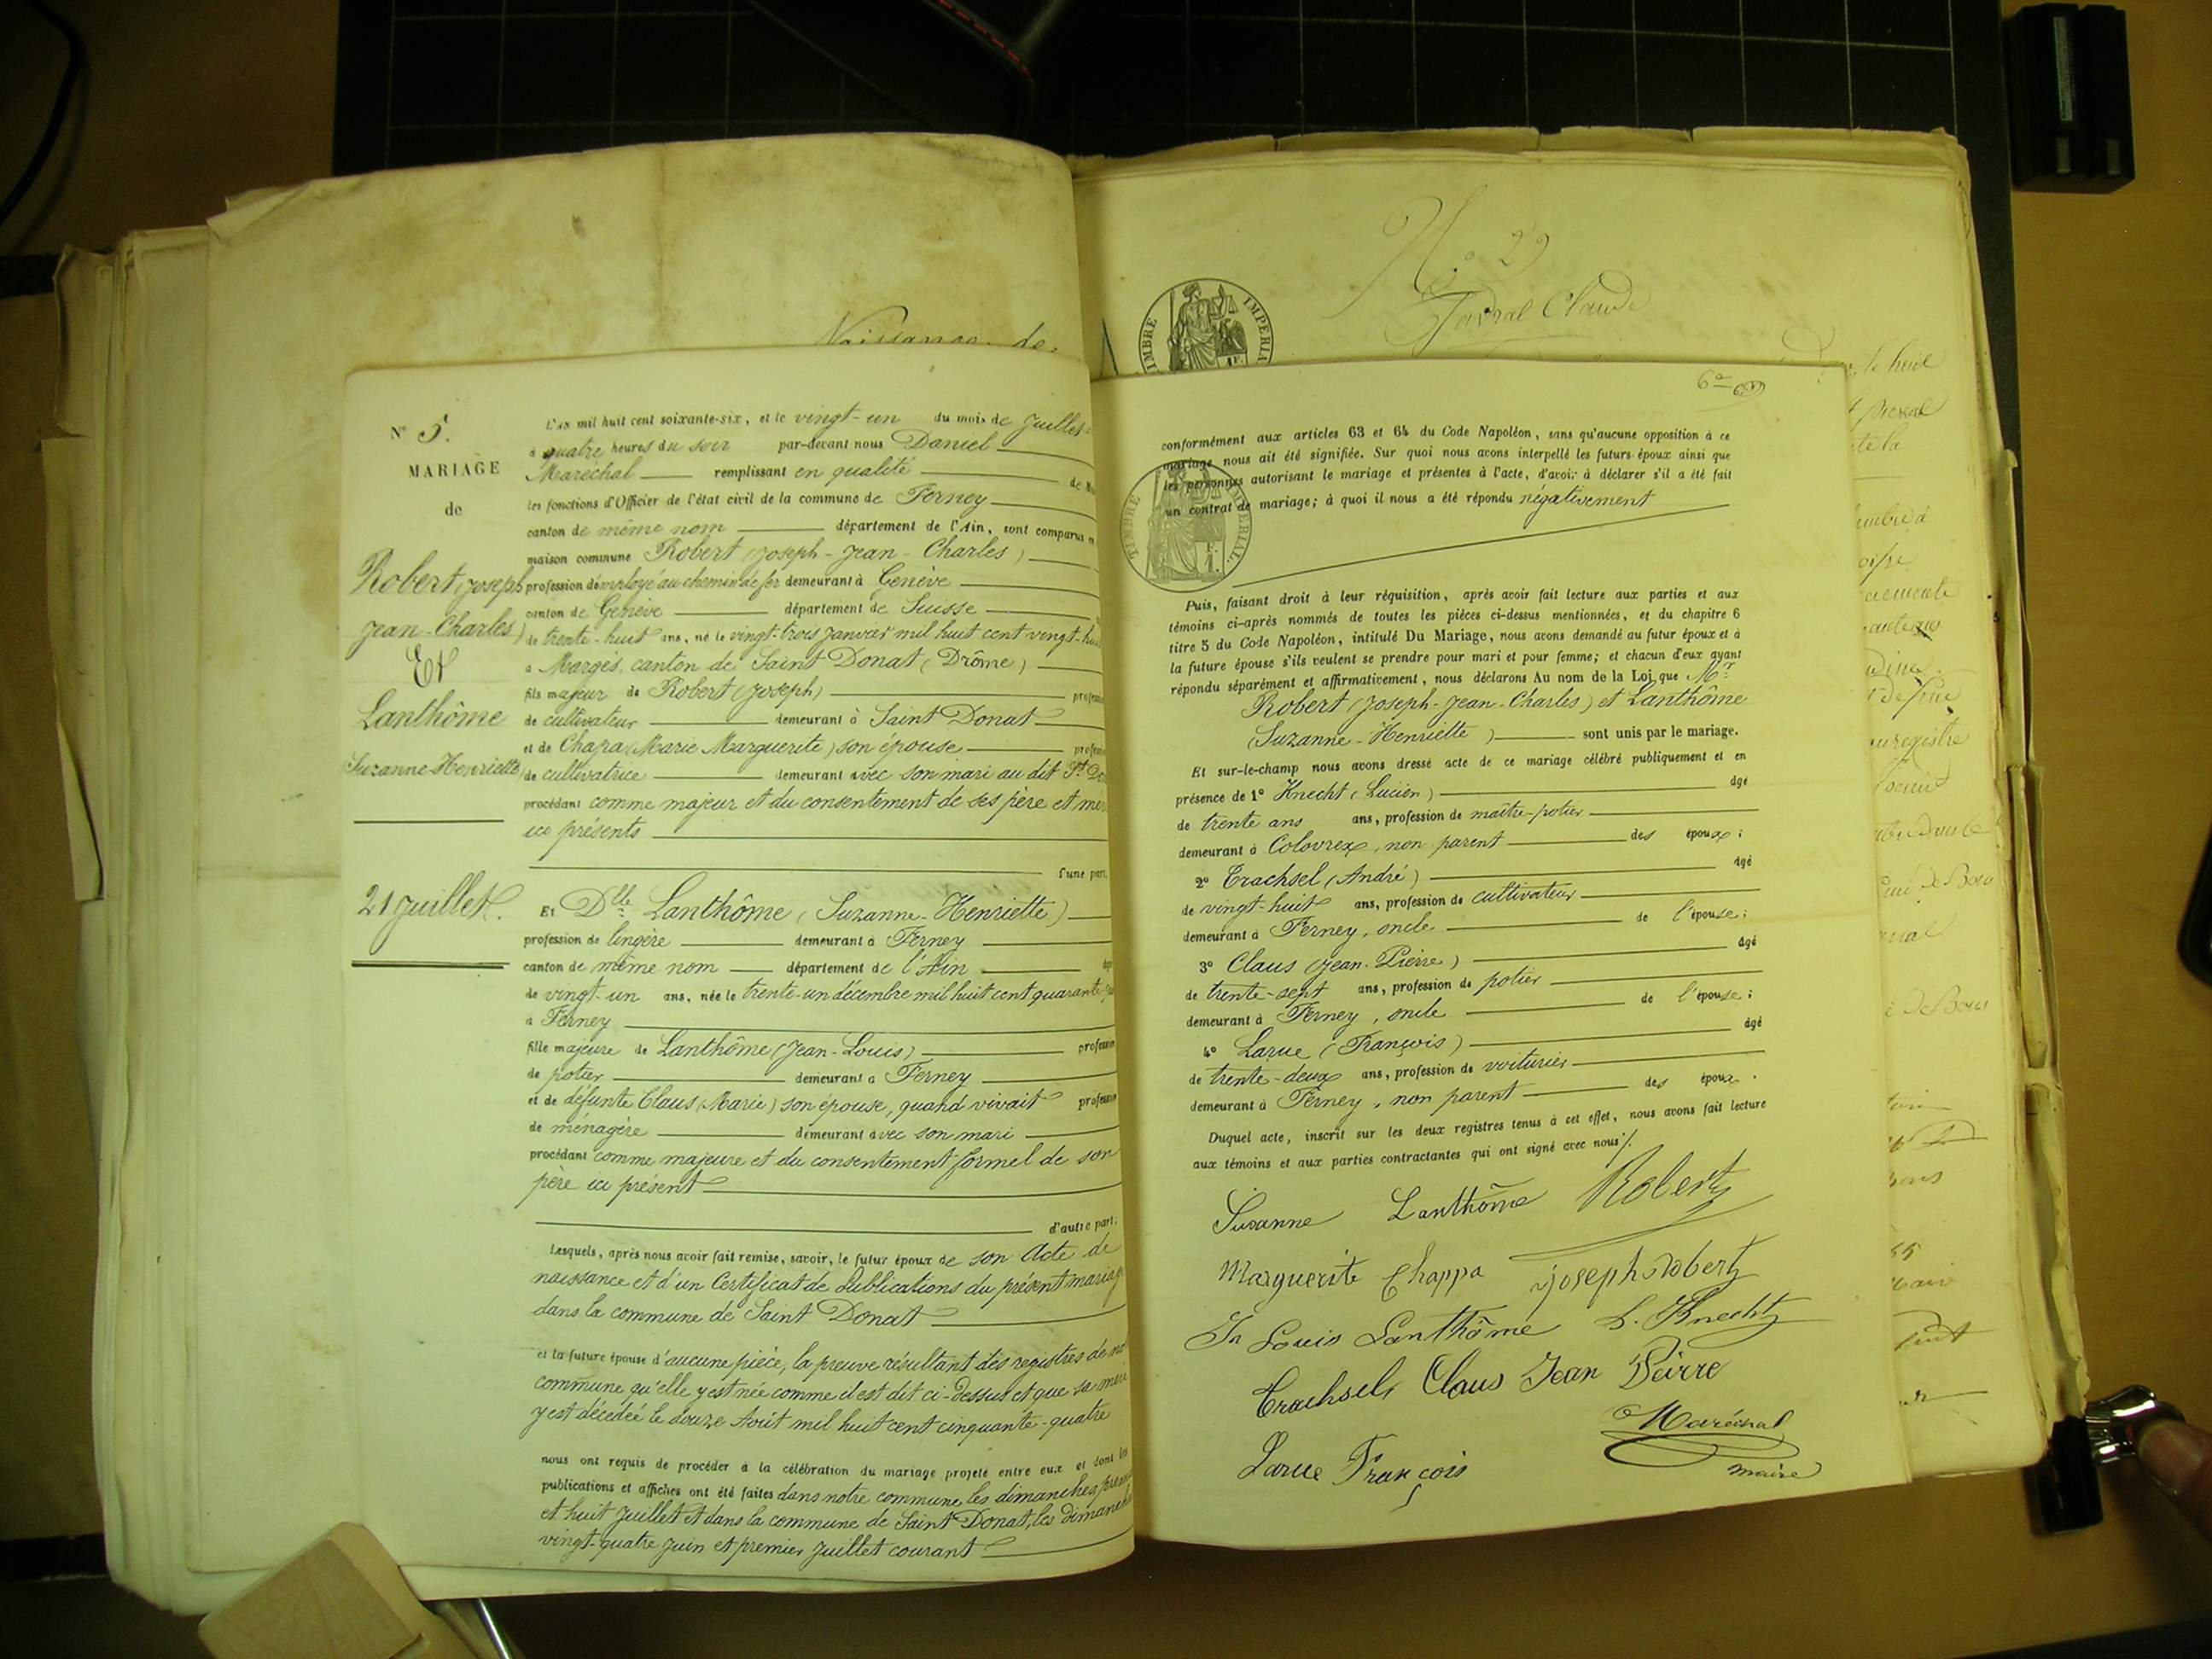 Naissance de
N° 5.
MARIAGE
de
Robert (Joseph
Jean-Charles)
Et
Lanthôme
(Suzanne-Henriette)
21 Juillet.
L'an mil huit cent soixante-six, et le vingt-un du mois de Juillet
à quatre heures du soir par-devant nous Daniel
Maréchal remplissant en qualité de
les fonctions d'Officier de l'état civil de la commune de Ferney
canton de même nom département de l'Ain, sont comparus
maison commune Robert (Joseph-Jean-Charles)
profession d'employé au chemin de fer demeurant à Genève
canton de Genève département de Suisse
de trente-huit ans, né le vingt-trois Janvier mil huit cent vingt-huit
à Margès, canton de Saint Donat (Drôme)
fils majeur de Robert (Joseph) profession
de cultivateur demeurant à Saint Donat
et de Chapa (Marie Marguerite) son épouse profession
de cultivatrice demeurant avec son mari au dit St
procédant comme majeur et du consentement de ses père et mère
ici présents
d'une part,
Et Dlle Lanthôme (Suzanne-Henriette)
profession de lingère demeurant à Ferney
canton de même nom département de l'Ain
de vingt-un ans, née le trente-un décembre mil huit cent quarante
à Ferney
fille majeure de Lanthôme (Jean-Louis) profession
de potier demeurant à Ferney
et de défunte Claus (Marie) son épouse, quand vivait profession
de ménagère demeurant avec son mari
procédant comme majeure et du consentement formel de son
père ici présent
d'autre part;
Lesquels, après nous avoir fait remise, savoir, le futur époux de son Acte de
naissance et d'un Certificat de Publications du présent mariage
dans la commune de Saint Donat
et la future épouse d'aucune pièce, la preuve résultant des registres de
commune qu'elle y est née comme il est dit ci-dessus et que sa mère
y est décédée le douze Août mil huit cent cinquante-quatre
nous ont requis de procéder à la célébration du mariage projeté entre eux et dont les
publications et affiches ont été faites dans notre commune les dimanches premier
et huit Juillet et dans la commune de Saint Donat, les dimanches
vingt-quatre Juin et premier Juillet courant
N° 29
Claude
TIMBRE IMPERIAL
6e
conformément aux articles 63 et 64 du Code Napoléon, sans qu'aucune opposition à ce
mariage nous ait été signifiée. Sur quoi nous avons interpellé les futurs époux ainsi que
les personnes autorisant le mariage et présentes à l'acte, d'avoir à déclarer s'il a été fait
un contrat de mariage; à quoi il nous a été répondu négativement
TIMBRE IMPERIAL.
Puis, faisant droit à leur réquisition, après avoir fait lecture aux parties et aux
témoins ci-après nommés de toutes les pièces ci-dessus mentionnées, et du chapitre 6
titre 5 du Code Napoléon, intitulé Du Mariage, nous avons demandé au futur époux et à
la future épouse s'ils veulent se prendre pour mari et pour femme; et chacun d'eux ayant
répondu séparément et affirmativement, nous déclarons Au nom de la Loi que Mr
Robert (Joseph-Jean-Charles) et Lanthôme
(Suzanne-Henriette) sont unis par le mariage.
Et sur-le-champ nous avons dressé acte de ce mariage célébré publiquement et en
présence de 1° Knecht (Lucien) âgé
de trente ans ans, profession de maître-potier
demeurant à Colovrex, non parent des époux;
2° Trachsel (André) âgé
de vingt-huit ans, profession de cultivateur
demeurant à Ferney, oncle de l'épouse;
3° Claus (Jean-Pierre) âgé
de trente-sept ans, profession de potier
demeurant à Ferney, oncle de l'épouse;
4° Larue (François) âgé
de trente-deux ans, profession de voiturier
demeurant à Ferney, non parent des époux.
Duquel acte, inscrit sur les deux registres tenus à cet effet, nous avons fait lecture
aux témoins et aux parties contractantes qui ont signé avec nous /.
Susanne Lanthôme Robert
Marguerite Chappa joseph robert
Jn Louis Lanthôme L. Knecht
Trachsel, Claus Jean Peirre
Maréchal
maire
Larue François